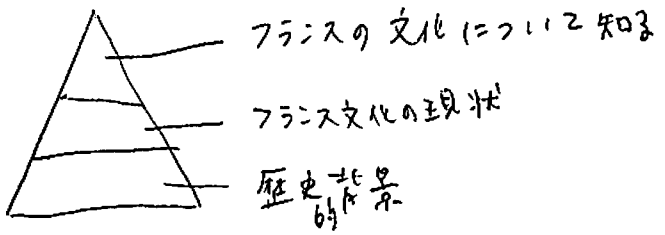 フランスの文化について知る
フランス文化の現状
歴史的背景